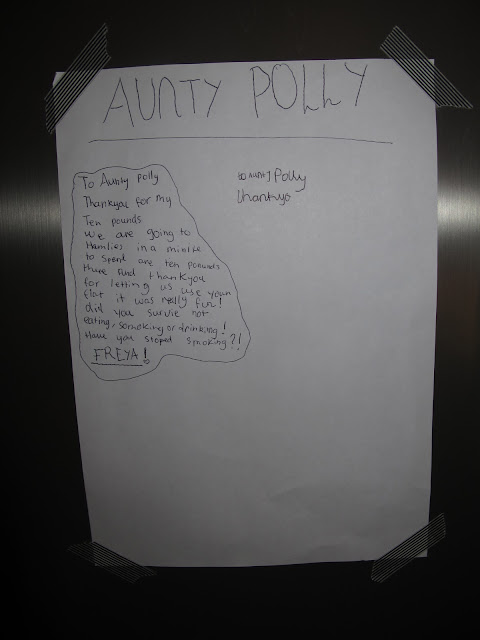 AUNTY POLLY
To Aunty Polly
Thankyou for my
Ten pounds
we are going to
Hamlies in a minite
to spend are ten pounds
there and thankyou
for letting us use your
flat it was really fun!
did you survie not
eating, somoking or drinking!
Have you stoped smoking?!
FREYA!
to Aunty Polly
thankyo